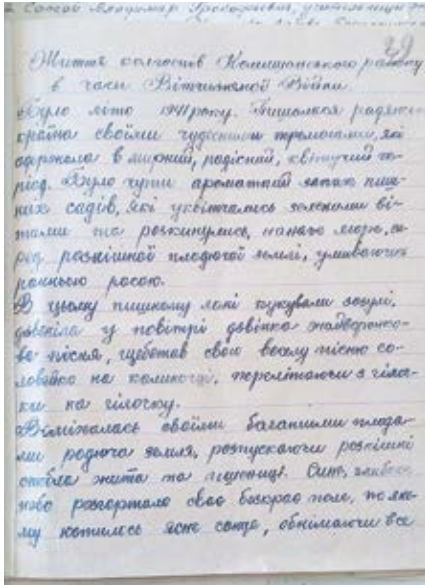 Сакон Владимир Прокофьевич, учительниця
29
Життя колгоспів Комишанського району
в часи Вітчизняної Війни.
Було літо 1941 року. Пишалася радянська
країна своїми чудесними перемогами, які
одержала в мирний, радісний, квітучий пе-
ріод. Було чути ароматний запах пиш-
них садів, які уквітчались зеленими ві-
тами та розкинулись, наначе море, се-
ред розкішної плодючої землі, умиваючись
ранньою росою.
В цьому пишному лоні кукували зозулі,
дзвеніла у повітрі дзвінка жайворонко-
ва пісня, щебетав свою веселу пісню со-
ловейко на калиночці, перелітаючи з гілоч-
ки на гілочку.
Втішалась своїми багатими плода-
ми родюча земля, розпускаючи розкішні
стебла жита та пшениці. Синє,
небо розгортало своє безкрає поле, по яко-
му котилось ясне сонце, обнімаючи все